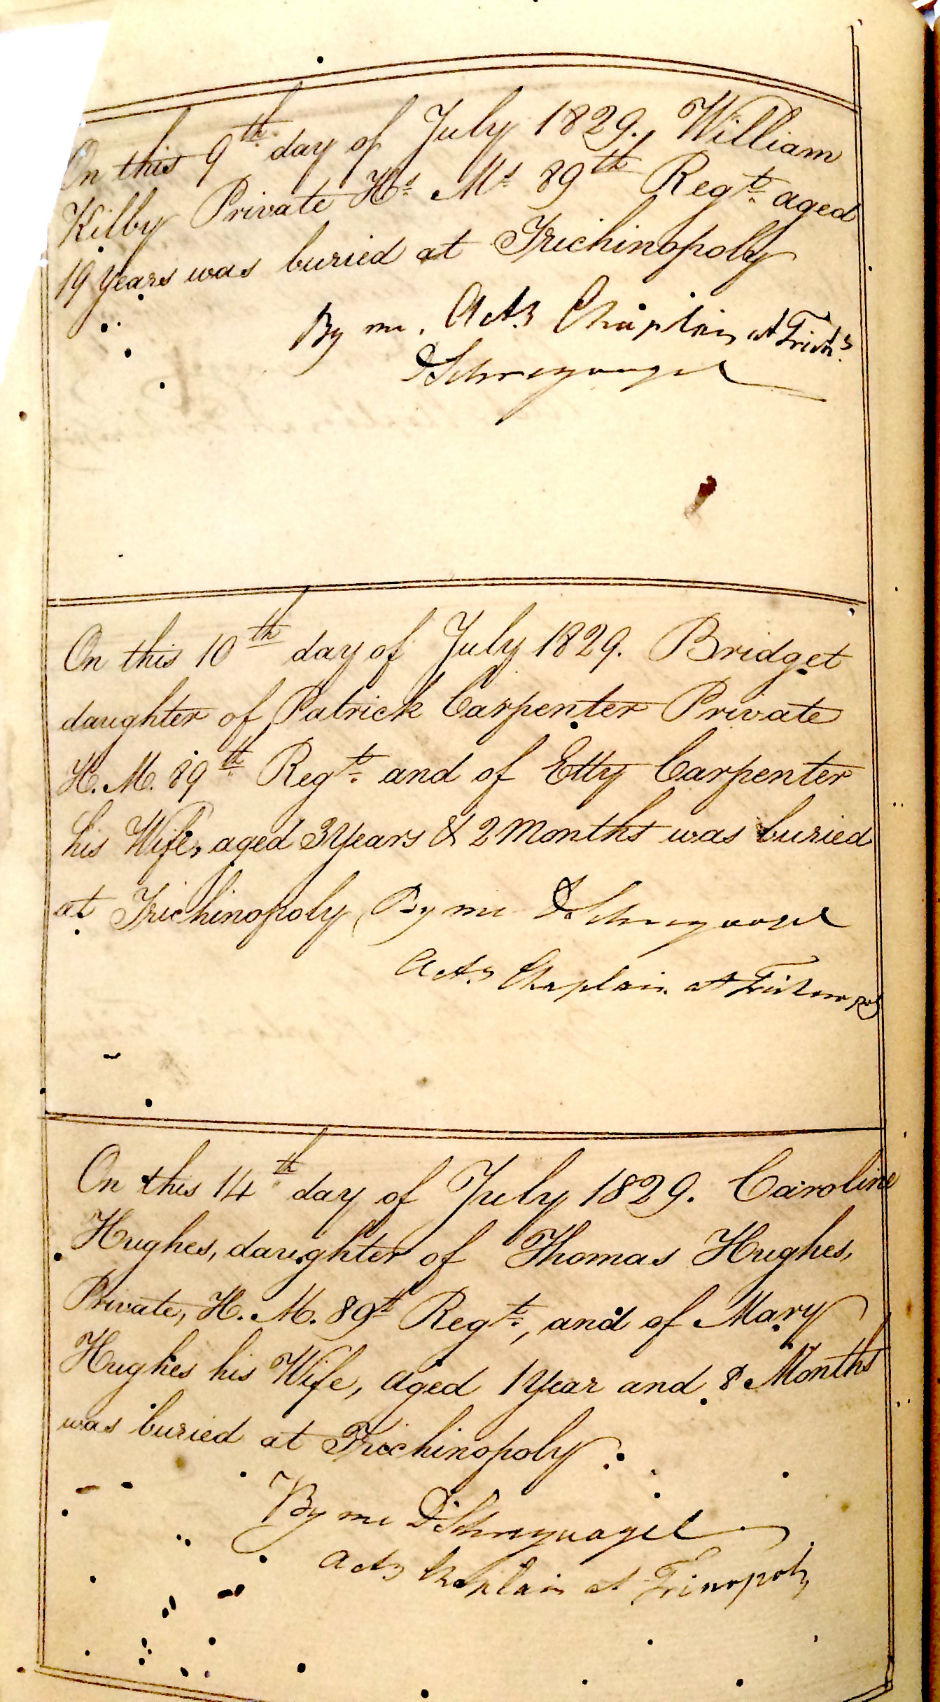 On this 9th day of July 1829., William
Kilby Private Hs Ms 89th Regt. aged
19 Years was buried at Trichinopoly
By me. Actg Chaplain at Trich:
D Schreyvogel
On this 10th day of July 1829. Bridget
daughter of Patrick Carpenter Private
H. M. 89th Regt. and of Etty Carpenter
his Wife, aged 3 Years & 2 Months was buried
at Trichinopoly By me D Schreyvogel
Actg Chaplain at Trichinopoly
On this 14th day of July 1829. Caroline
Hughes, daughter of Thomas Hughes,
Private, H. M. 89th Regt., and of Mary
Hughes his Wife, aged 1 Year and 8 Months
was buried at Trichinopoly.
By me D Schreyvogel
Actg Chaplain at Trinopoly